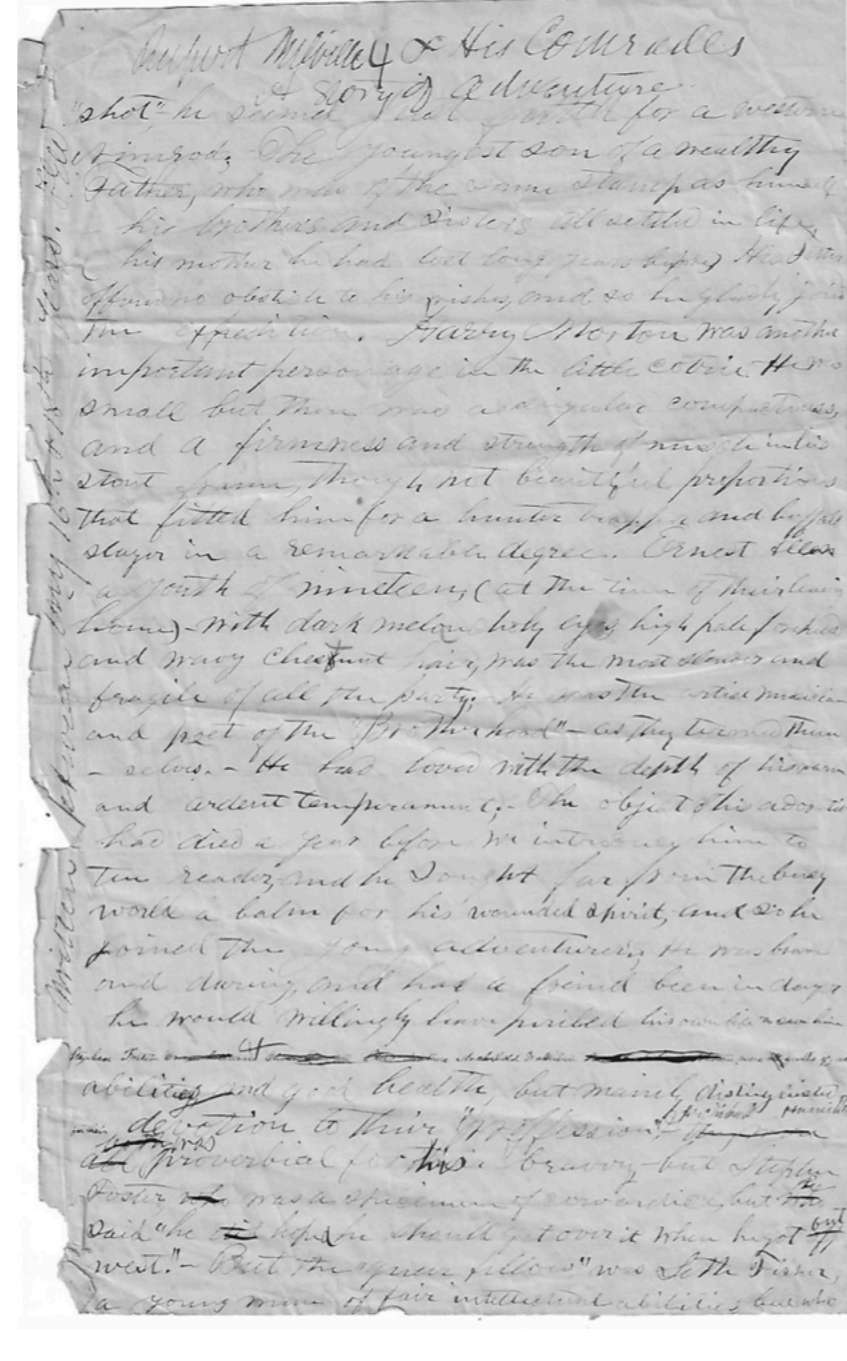 & His Comrades
A Story of Adventure
"shot" - he seemed just for a western
Nimrod. The youngest son of a wealthy
Father, who was of the same stamp as himself
- his brothers and sisters all settled in life,
his mother he had lost long years before, His Father
offered no obstacle to his wishes, and so he gladly joined
the expedition. Harry Morton was another
important personage in the little coterie He was
small but there was a singular compactness,
and a firmness and strength of muscle in his
stout frame, though not beautiful proportions
that fitted him for a hunter trapper and buffalo
slayer in a remarkable degree. Ernest
a youth of nineteen, (at the time of their leaving
home) - with dark melancholy eyes high pale forehead
and wavy chestnut hair, was the most slender and
fragile of all the party. He was the artist musician
and poet of the "Brotherhood" - as they termed them
- selves. - He had loved with the depth of his warm
and ardent temperament, - The object of his adoration
had died a year before we introduce him to
the reader, and he sought far from the busy
world a balm for his wounded spirit, and so he
joined the young adventurers, He was brave
and daring, and had a friend been in danger
he would willingly have periled his own life
abilities and good health, but mainly distinguished
devotion to their "profession" -
was proverbial for his bravery - but Stephen
Foster, was a specimen of cowardice, but
said "he hoped he should get over it when he got out
west." - But the "queer fellow" was Seth Fisher,
a young man of fair intellectual abilities but who
Written between my 16th & 18th years.